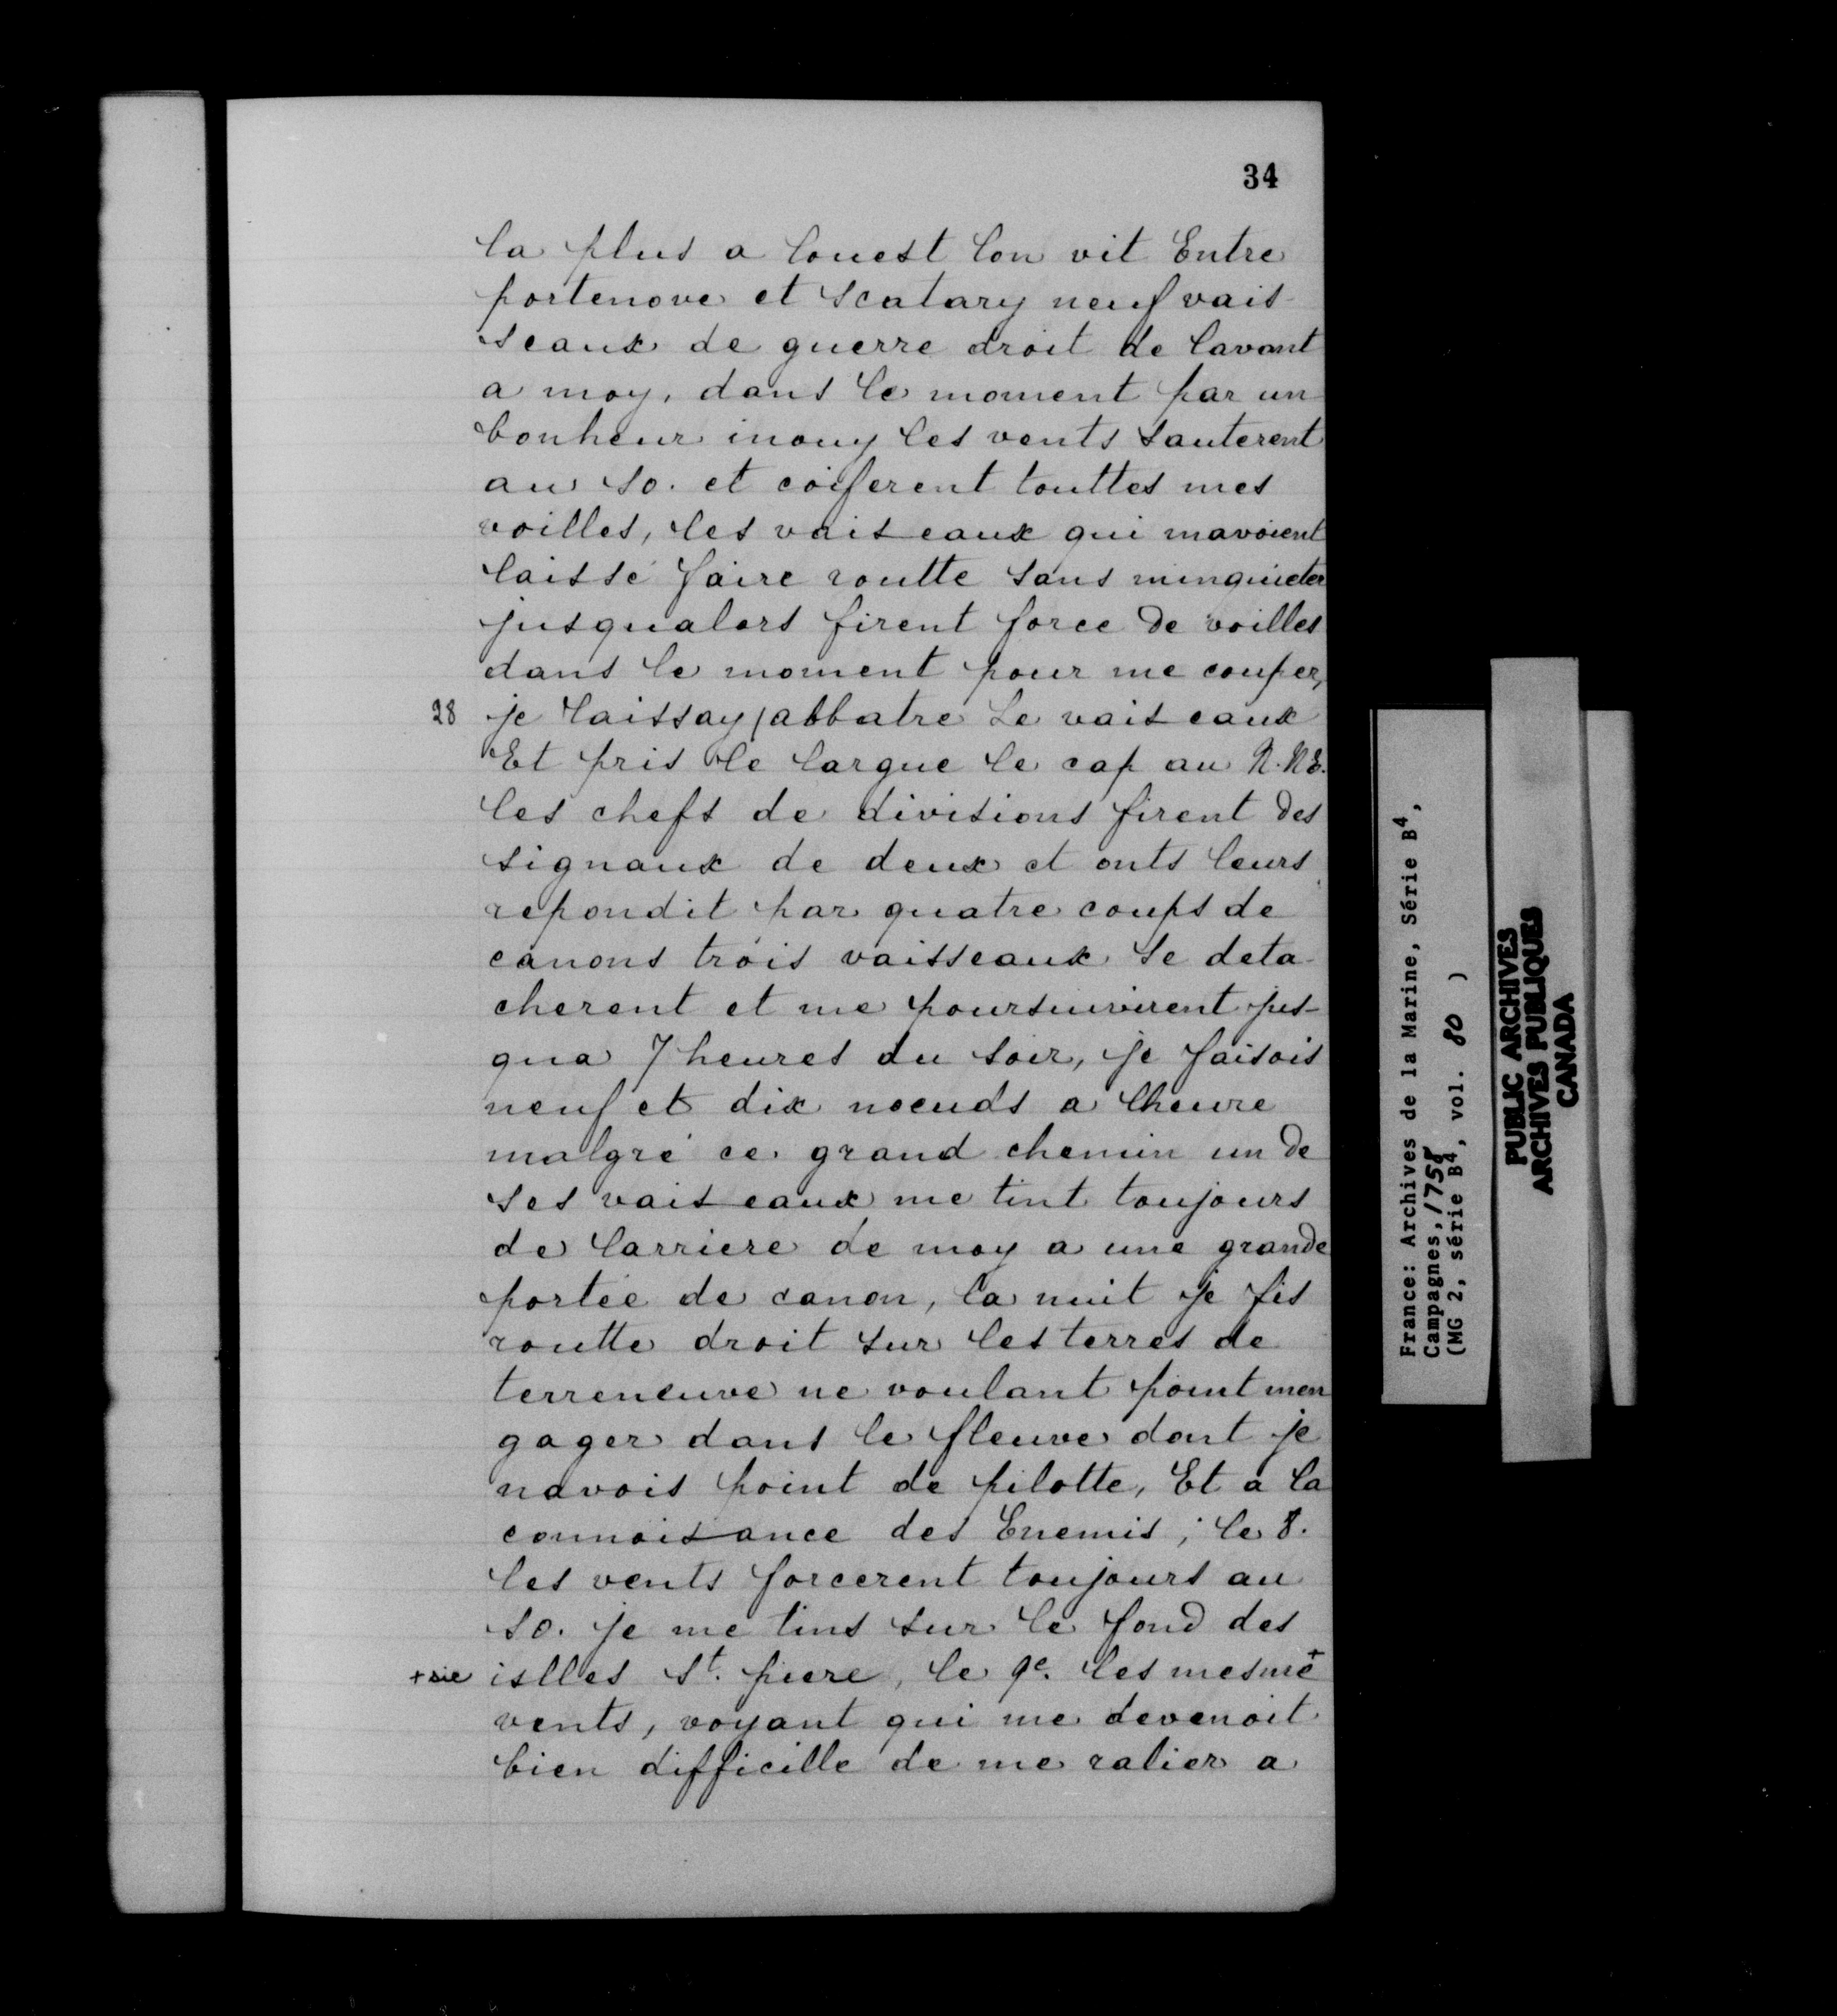 34
la plus a louest lon vit Entre
portenove et Scatary neuf vais-
seaux de guerre droit de lavant
a moy, dans le moment par un
bonheur inouy les vents sauterent
au so. et coiferent touttes mes
voilles, les vaiseaux qui mavoient
laissé faire routte sans minquieter
jusqualors firent force de voilles
dans le moment pour me couper,
28 je laissay/abbatre Le vaiseaux
Et pris le largue le cap au N.NE.
les chefs de divisions firent des
signaux de deux et onts leurs
repondit par quatre coups de
canons trois vaisseaux se deta-
cherent et me poursuivirent jus-
qua 7 heures du soir, je faisois
neuf et dix noeuds a lheure
malgré ce grand chemin un de
ses vaiseaux me tint toujours
de larriere de moy a une grande
portée de canon, la nuit je fis
routte droit sur les terres de
terreneuve ne voulant point men
gager dans le fleuve dont je
navois point de pilotte, Et a la
connoisance des Enemis; le 8.
les vents forcerent toujours au
so. je me tins sur le fond des
+sic islles St. piere, le 9e. les mesme+
vents, voyant qui me devenoit
bien difficille de me ralier a
France: Archives de la Marine, Série B4,
Campagnes, 1758
(MG 2, série B4, vol. 80 )
PUBLIC ARCHIVES
ARCHIVES PUBLIQUES
CANADA